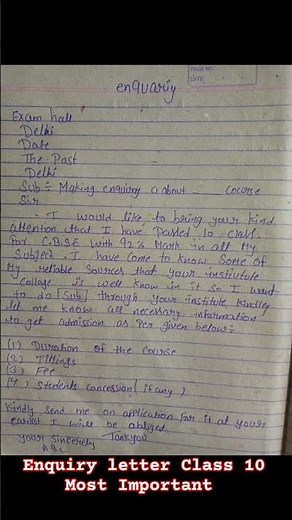 enquariy
Exam hall
Delhi
Date
The Past
Delhi
Sub÷ Making enquirg a about _ _ course
Sir
- I would like to bring your kind
attention that I have passed 10 class.
for C.B.S.E with 92% Mark in all My
Subject. I have come to know Some of
My reliable Sources that your institute
College is well know in it so I want
to do [Sub] through your institute kindley
let me know all necessary information
to get admission as per given below:-
(1) Duration of the course
(2) Tittings
(3) Fee
(4) students concession [if any]
Kindly send me on application for it at your
earliest I will be obliged.
your sincerely Tankyou
Enquiry letter Class 10
Most Important